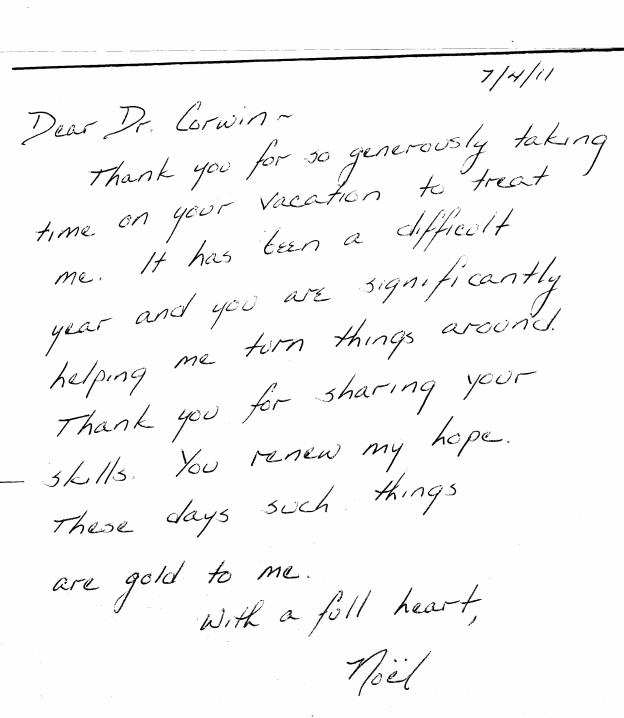 7/4/11
Dear Dr. Corwin~
Thank you for so generously taking
time on your vacation to treat
me. It has been a difficult
year and you are significantly
helping me turn things around.
Thank you for sharing your
skills. You renew my hope.
These days such things
are gold to me.
With a full heart,
Noël